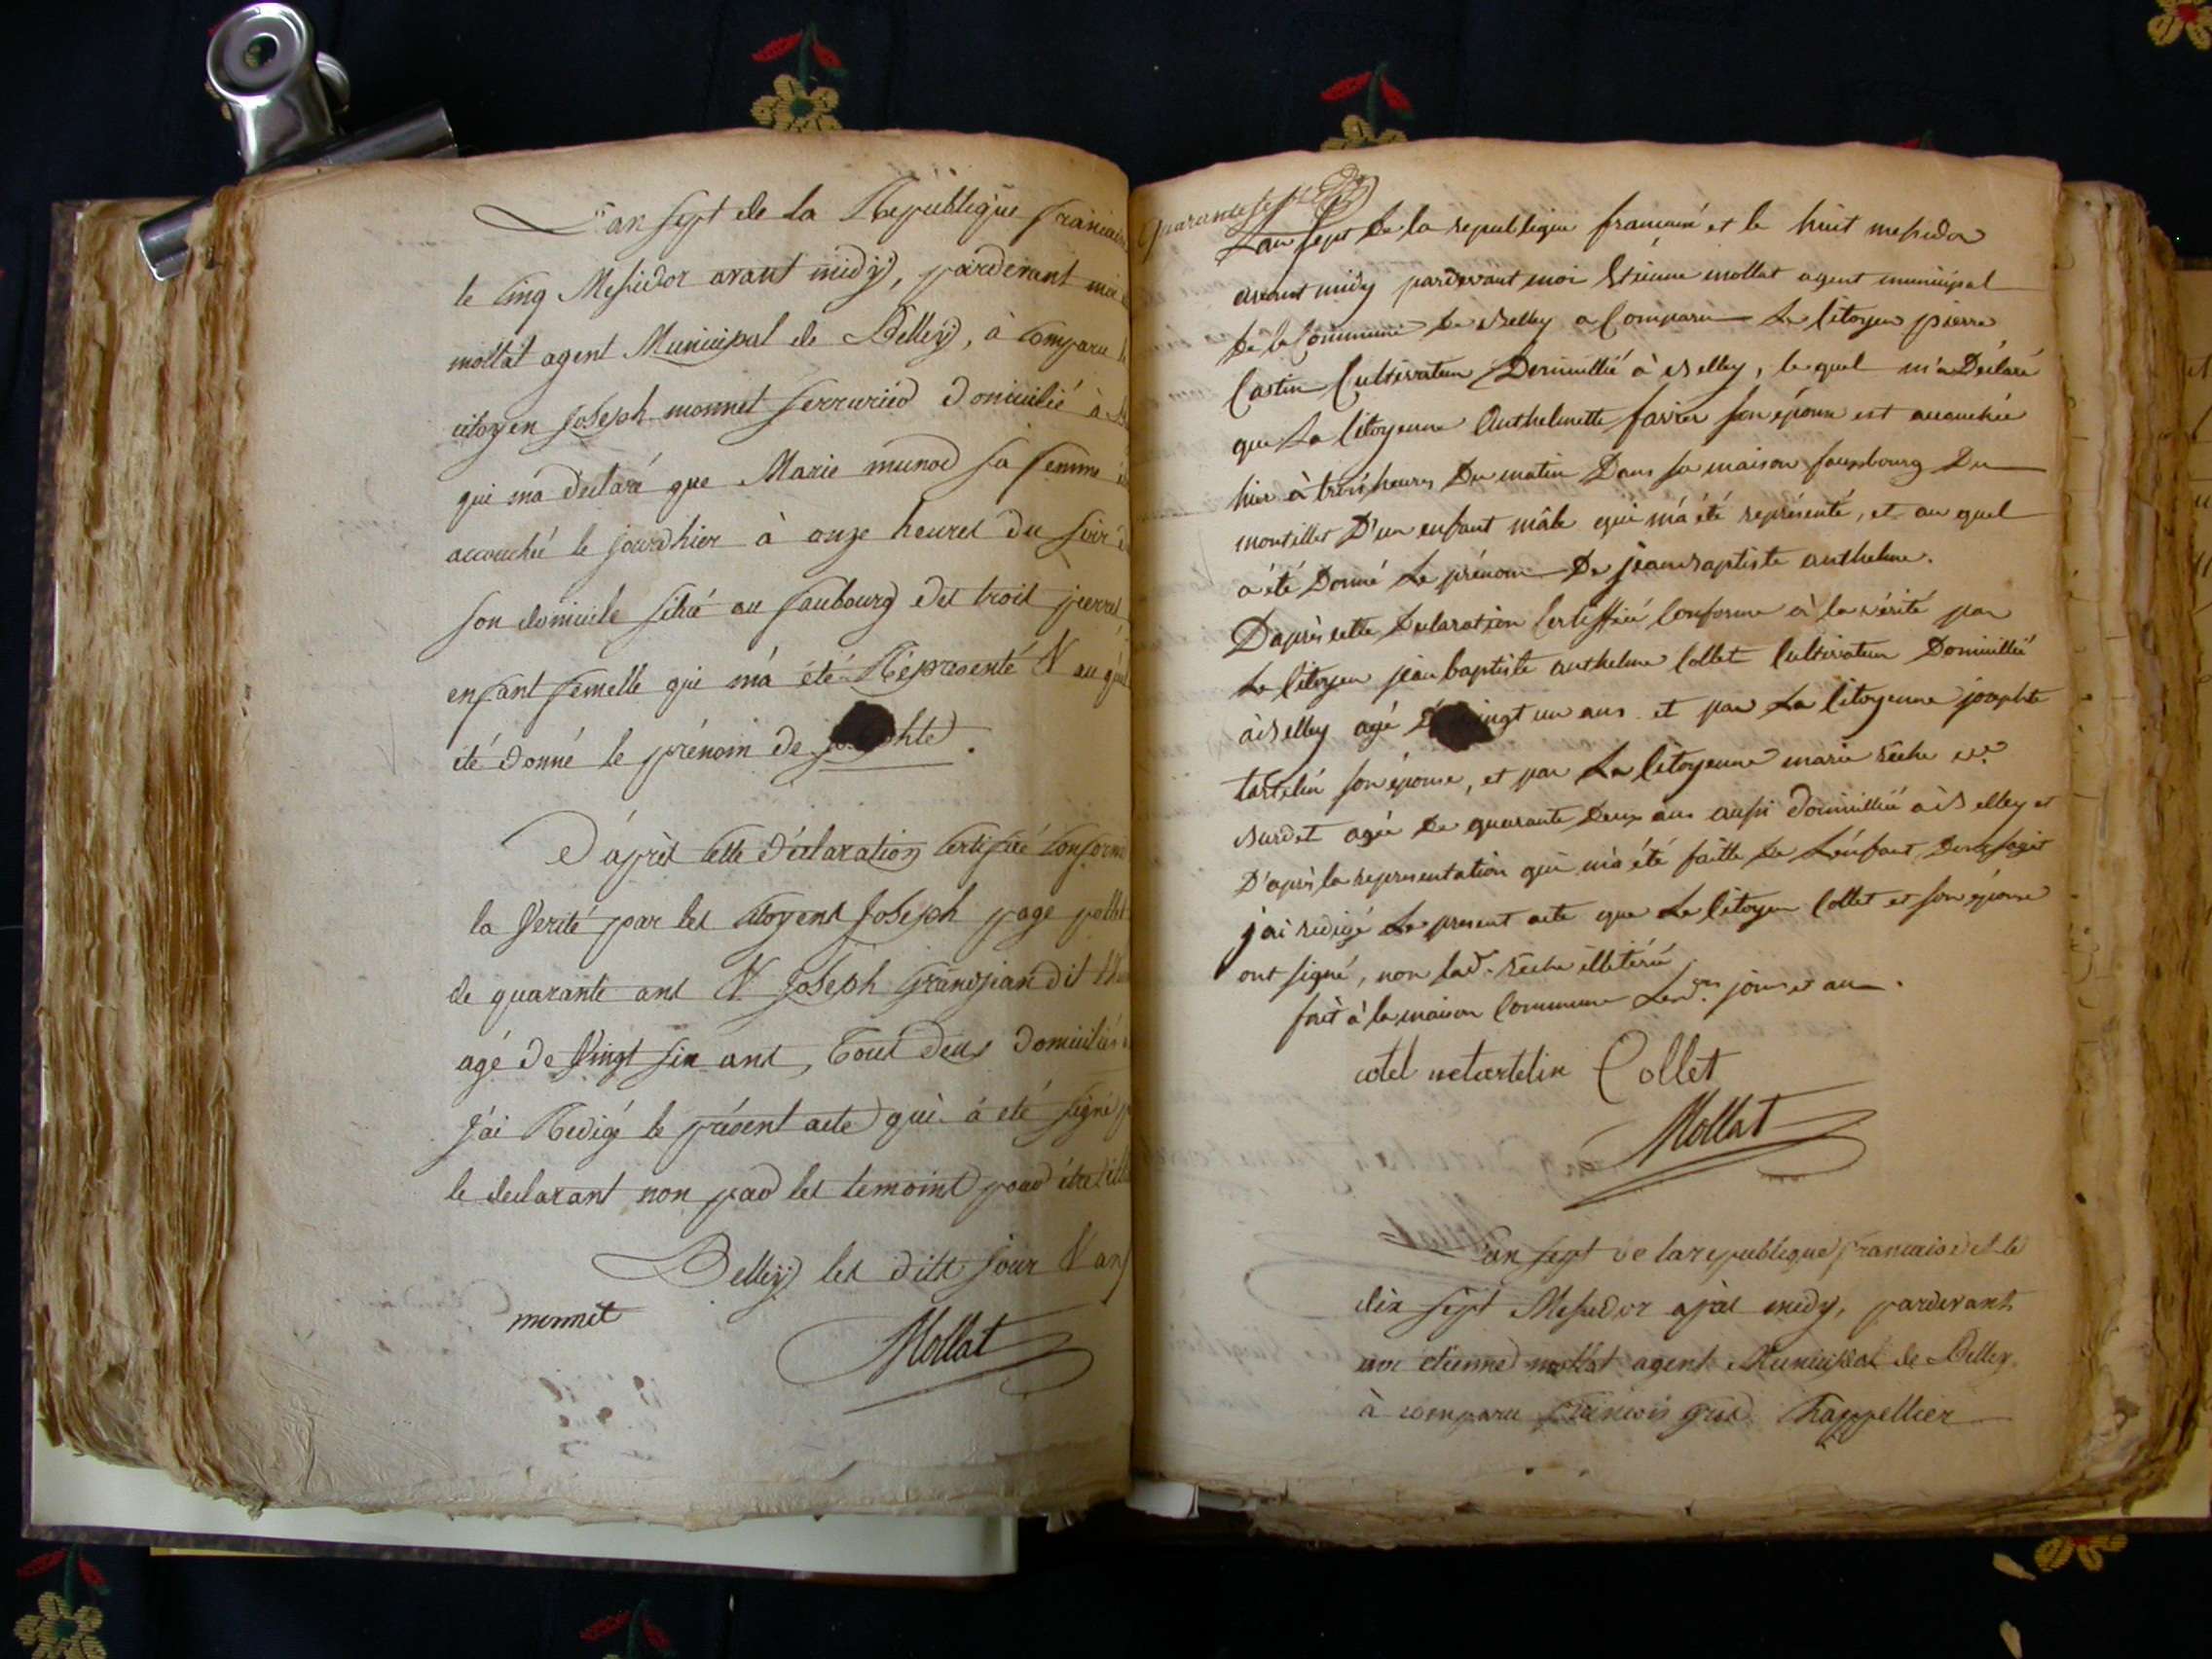 L'an sept de la République francaise
le cinq Messidor avant midÿ, pardevant moi
mollat agent Municipal de Belleÿ, à comparu le
citoyen Joseph monnet serrurier domicilié à
qui m'a déclaré que Marie munod sa femme
accouché le jourdhier à onze heures du soir
son domicile situé au faubourg des trois pierres
enfant femelle qui m'a été Représenté & auquel
été donné le prénom de josephte.
D'après cette déclaration certifiée conforme
la Verité par les citoyens Joseph page
de quarante ans & Joseph Grandjean dit
agé de Vingt six ans, tous deux domiciliés
j'ai Redigé le présent acte qui à été signé
le declarant non par les temoins pour être
Belleÿ les dits jour & an
monnet
Mollat
Quarante sept
L'an sept de la republique francaise et le huit messidor
avant midy pardevant moi Etienne mollat agent municipal
De la Commune De Belley a Comparu Le Citoyen pierre
Castin Cultivateur Domicillié à Belley, lequel m'a Déclaré
que La Citoyenne Anthelmette favier son épouse est accouchée
hier à trois heures Du matin Dans sa maison fauxbourg Du
montillet D'un enfant mâle qui m'a été représenté, et au quel
a été Donné Le prénom De jean Baptiste anthelme.
D'après cette Declaration Certiffiée Conforme à la vérité par
Le Citoyen jean baptiste anthelme Collet Cultivateur Domicillié
à Belley agé De vingt un ans et par La Citoyenne josephte
tartelin son épouse, et par La Citoyenne marie reche ve.
Burdet agée De quarante Deux ans aussi domicilliée à Belley et
D'après la representation qui m'a été faitte De L'énfant Dont s'agit
j'ai redigé Le present acte que Le Citoyen Collet et son épouse
ont signé, non lad. reche illitérée
fait à la maison Commune Lesd. jour et an.
cotel ne tartelin Collet
Mollat
L'an sept de la republique francaise et le
dix sept Messidor après midy, pardevant
moi etienne mollat agent Municipal de Belley
à comparu francois gros Chappellier